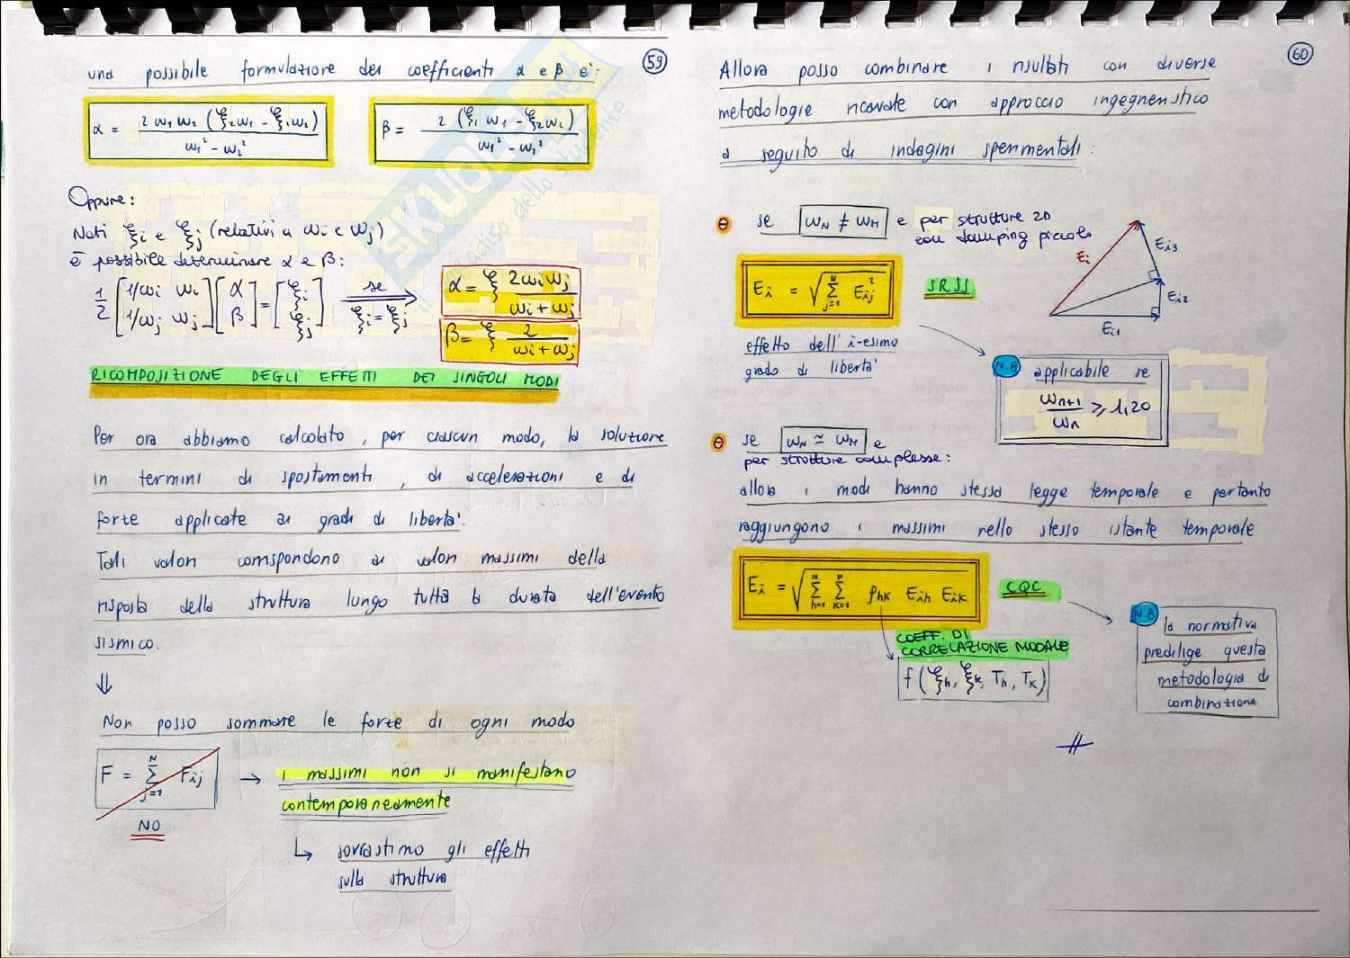 59
una possibile formulazione dei coefficienti α e β è:
α = 2 ω1 ω2 (ξ2 ω1 - ξ1 ω2) / ω1² - ω2²
β = 2 (ξ1 ω1 - ξ2 ω2) / ω1² - ω2²
Oppure:
Noti ξi e ξj (relativi a ωi e ωj)
è possibile determinare α e β:
1/2 [1/ωi ωi 1/ωj ωj] [α β] = [ξi ξj] se ξi = ξj
α = ξ 2ωiωj / ωi + ωj
β = ξ 2 / ωi + ωj
RICOMPOSIZIONE DEGLI EFFETTI DEI SINGOLI MODI
Per ora abbiamo calcolato, per ciascun modo, la soluzione
in termini di spostamenti, di accelerazioni e di
forze applicate ai gradi di libertà.
Tali valori corrispondono ai valori massimi della
risposta della struttura lungo tutta la durata dell'evento
sismico.
⇓
Non posso sommare le forze di ogni modo
F = Σ j=1 N Fij → i massimi non si manifestano
contemporaneamente
NO
↳ sovrastimo gli effetti
sulla struttura
60
Allora posso combinare i risultati con diverse
metodologie ricavate con approccio ingegneristico
a seguito di indagini sperimentali:
se ωN ≠ ωM e per strutture 2D
con damping piccolo
Ei = √ Σ j=1 N Eij² SRSS
effetto dell' i-esimo
grado di libertà
Ei
Ei3
Ei2
Ei1
N.B applicabile se
ωn+1 / ωn ≥ 1,20
se ωN ≃ ωM e
per strutture complesse:
allora i modi hanno stessa legge temporale e pertanto
raggiungono i massimi nello stesso istante temporale
Ei = √ Σ h=1 N Σ k=1 N ρhk Eih Eik CQC
COEFF. DI
CORRELAZIONE MODALE
f (ξh, ξk, Th, Tk)
N.B la normativa
predilige questa
metodologia di
combinazione
SKUOLA.net